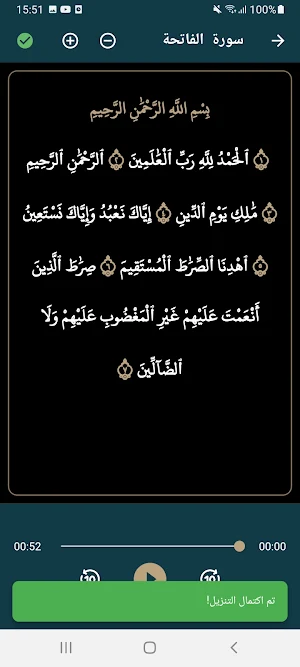 15:51 100%
سورة الفاتحة
بِسْمِ اللَّهِ الرَّحْمَٰنِ الرَّحِيمِ
١ ٱلْحَمْدُ لِلَّهِ رَبِّ ٱلْعَٰلَمِينَ ٢ ٱلرَّحْمَٰنِ ٱلرَّحِيمِ
٣ مَٰلِكِ يَوْمِ ٱلدِّينِ ٤ إِيَّاكَ نَعْبُدُ وَإِيَّاكَ نَسْتَعِينُ
٥ ٱهْدِنَا ٱلصِّرَٰطَ ٱلْمُسْتَقِيمَ ٦ صِرَٰطَ ٱلَّذِينَ
أَنْعَمْتَ عَلَيْهِمْ غَيْرِ ٱلْمَغْضُوبِ عَلَيْهِمْ وَلَا
ٱلضَّآلِّينَ ٧
00:52 00:00
10 10
تم اكتمال التنزيل!